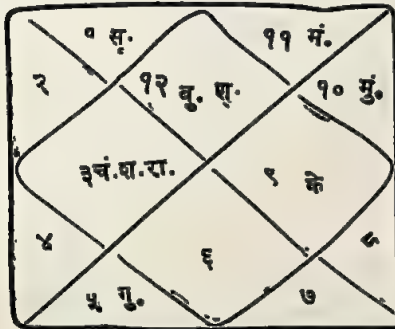 १ सू.
११ मं.
२
१२ बु. शु.
१० मुं.
३चं.श.रा.
९ के
४
६
८
५ गु.
७